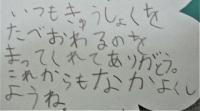 いつもきゅうしょくを
たべおわるのを
まってくれてありがとう。
これからもなかよくし
ようね。